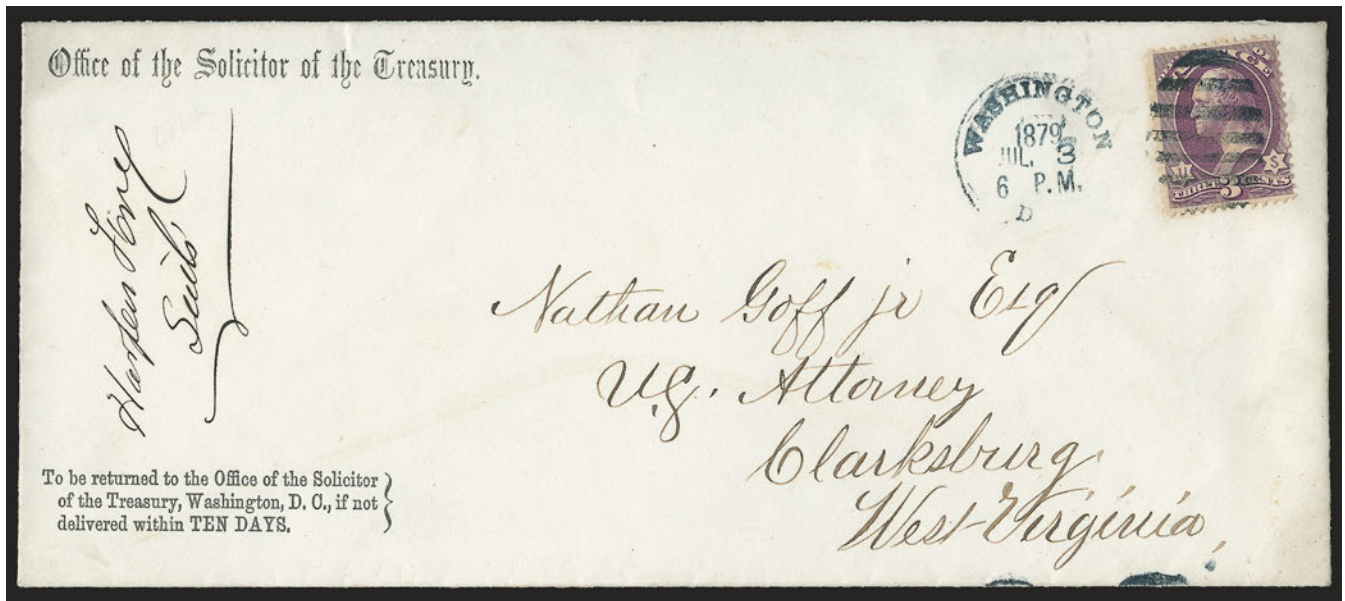 Office of the Solicitor of the Treasury.
WASHINGTON
1879
JUL. 3
6 P.M.
D
U S
THREE 3 CENTS
Nathan Goff jr Esq
U.S. Attorney
Clarksburg
West-Virginia,
To be returned to the Office of the Solicitor
of the Treasury, Washington, D. C., if not
delivered within TEN DAYS.